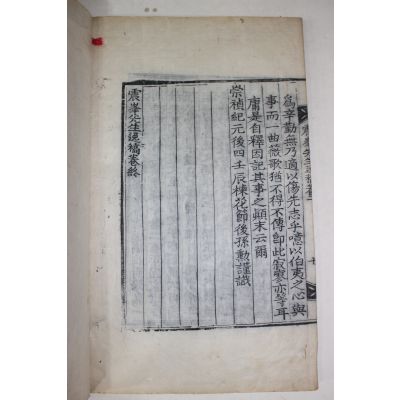 爲辛勤無乃適以傷先志乎噫以伯夷之心與
事而一曲薇歌猶不得不傳卽此寂寥亦等耳
庸是自釋因記其事之顚末云爾
崇禎紀元後四壬辰楝花節後孫勳謹識
震峯先生逸稿卷終